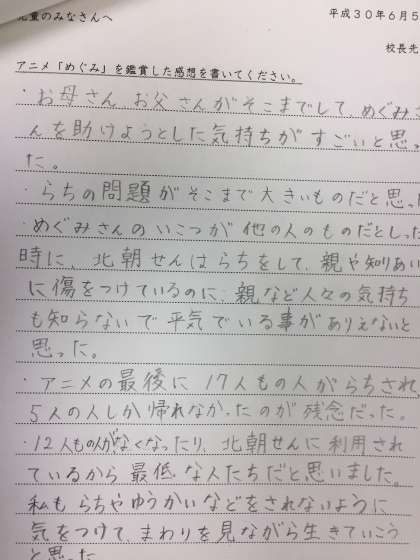 児童のみなさんへ
平成30年6月5
校長先
アニメ「めぐみ」を鑑賞した感想を書いてください。
・お母さん、お父さんがそこまでして、めぐみさ
んを助けようとした気持ちがすごいと思っ
た。
・らちの問題がそこまで大きいものだと思った
・めぐみさんのいこつが他の人のものだとしった
時に、北朝せんはらちをして、親や知りあい
に傷をつけているのに、親など人々の気持ち
も知らないで平気でいる事がありえないと
思った。
・アニメの最後に17人もの人がらちされ、
5人の人しか帰れなかったのが残念だった。
・12人もの人がなくなったり、北朝せんに利用され
ているから最低な人たちだと思いました。
私もらちやゆうかいなどをされないように
気をつけて、まわりを見ながら生きていこう
と思った